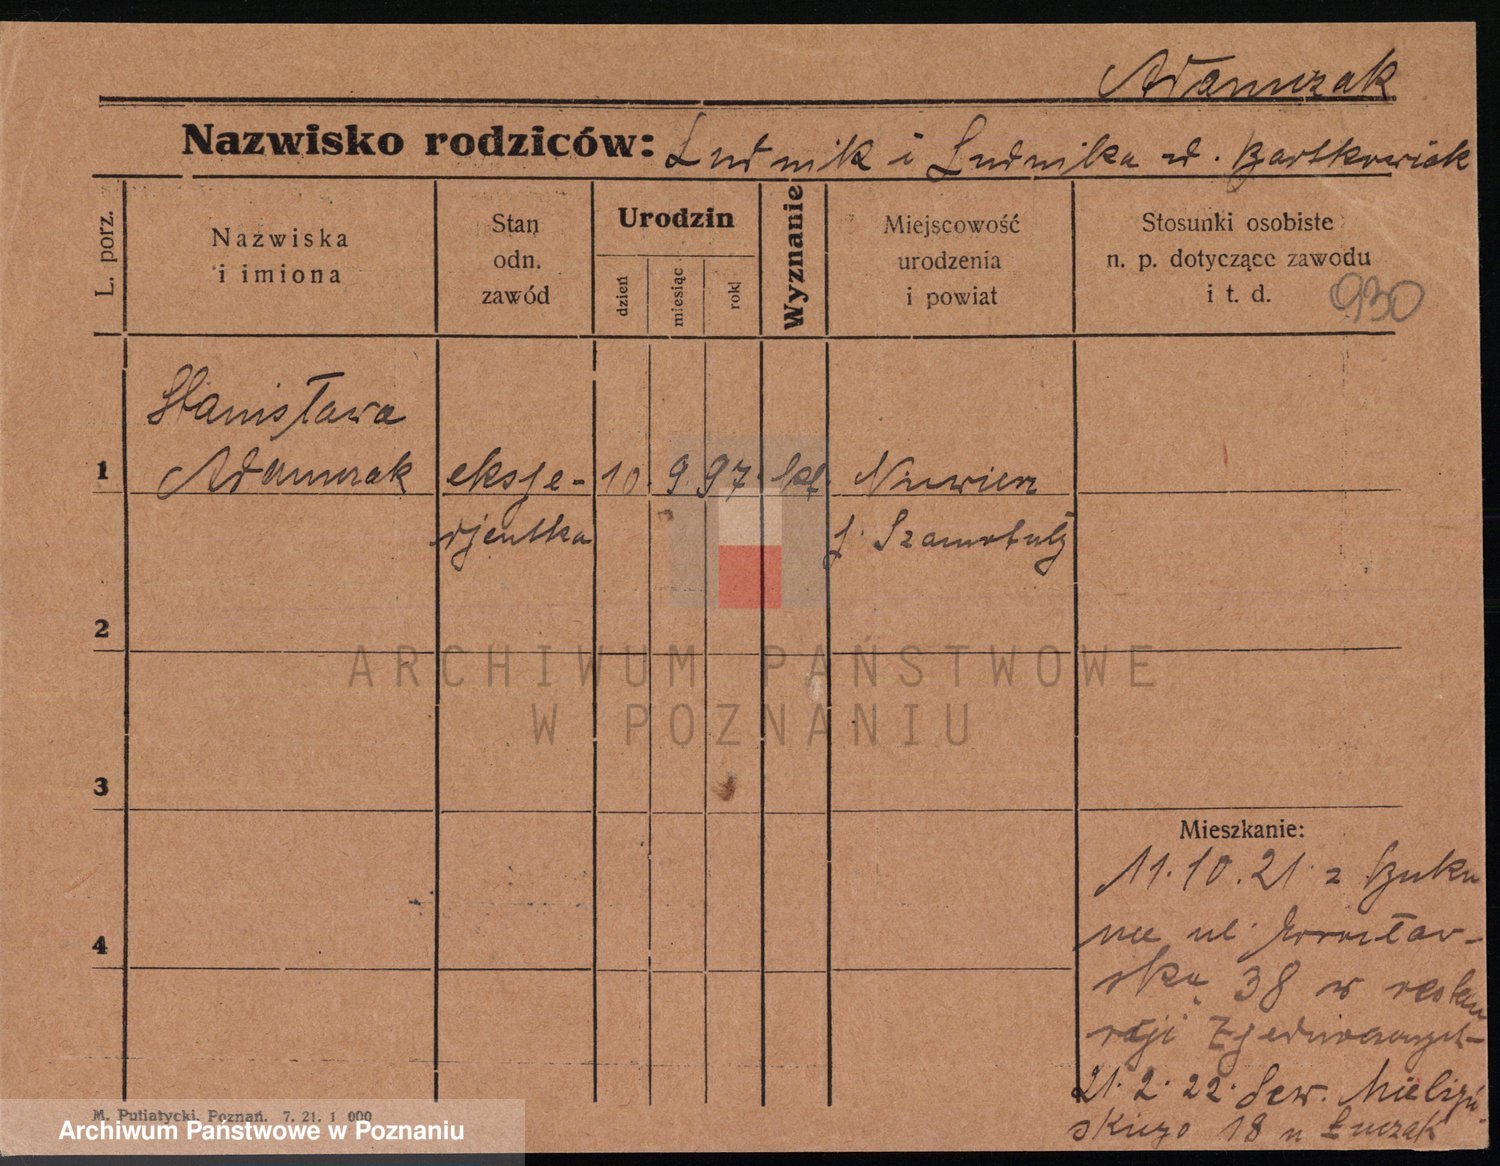 Adamczak
Nazwisko rodziców: Ludwik i Ludwika d. Bartkowiak
L. porz.
Nazwiska
i imiona
Stan
odn.
zawód
Urodzin
dzień
miesiąc
rok
Wyznanie
Miejscowość
urodzenia
i powiat
Stosunki osobiste
n. p. dotyczące zawodu
i t. d.
930
Stanisława
1 Adamczak ekspe- 10. 9. 97. kt.
djentka p. Szamotuły
2
ARCHIWUM PAŃSTWOWE
W POZNANIU
3
Mieszkanie:
11.10.21. z
ul. Wrocław-
ską 38 w restau
racji
4
21.2.22. Sew. Mielżyń
skiego 18 u Łuczak
M. Putiatycki, Poznań. 7. 21. 1 000
Archiwum Państwowe w Poznaniu